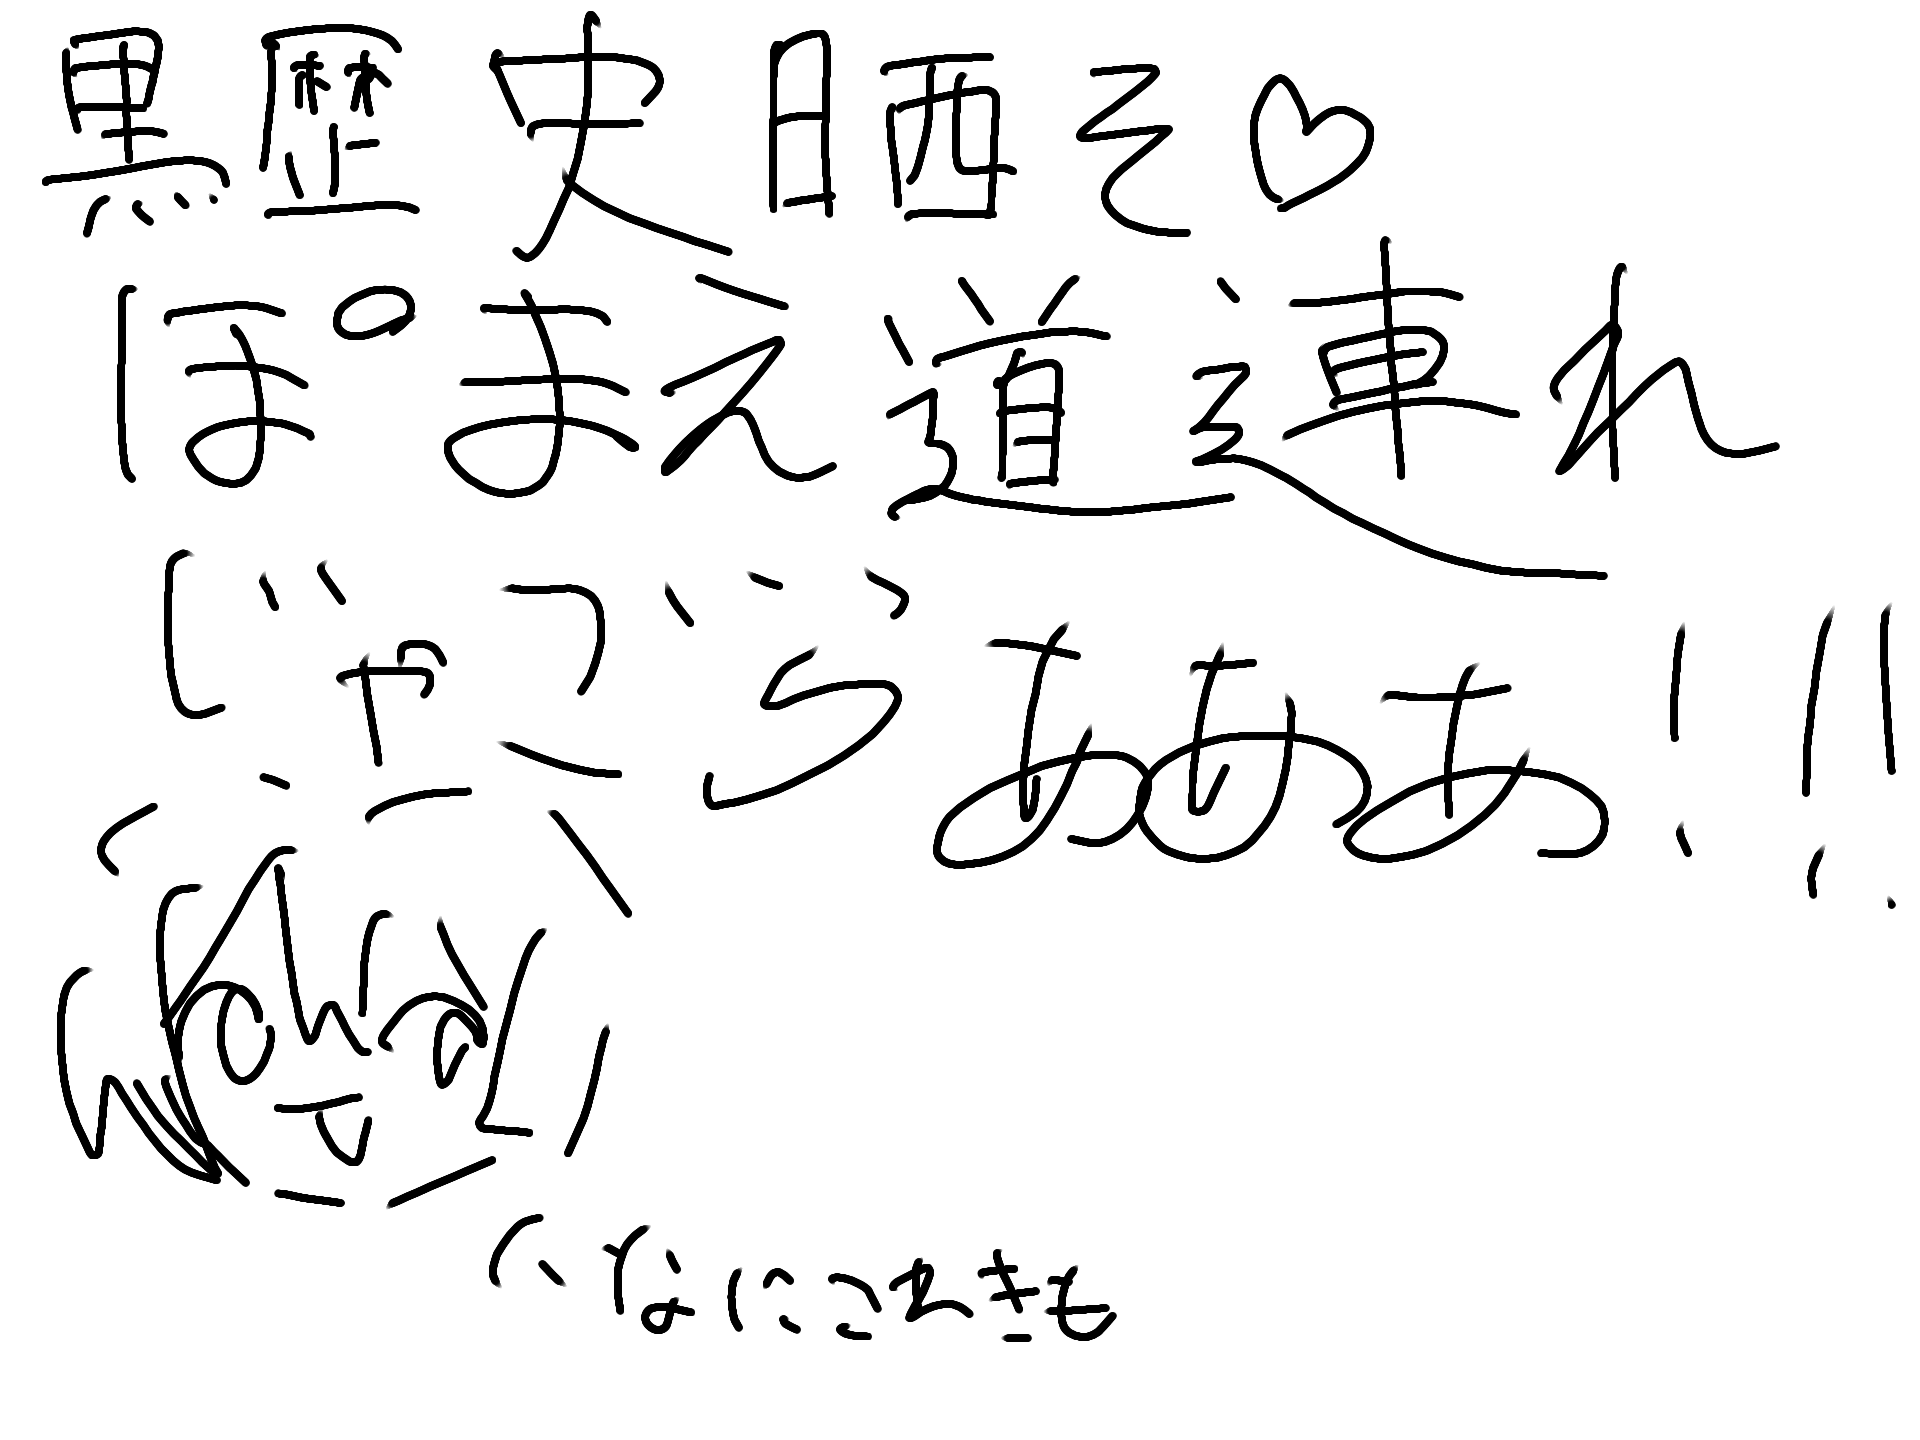 黒歴史晒そ♡
ぽまえ道連れ
じゃごらあああ!!!
いなにこれきも